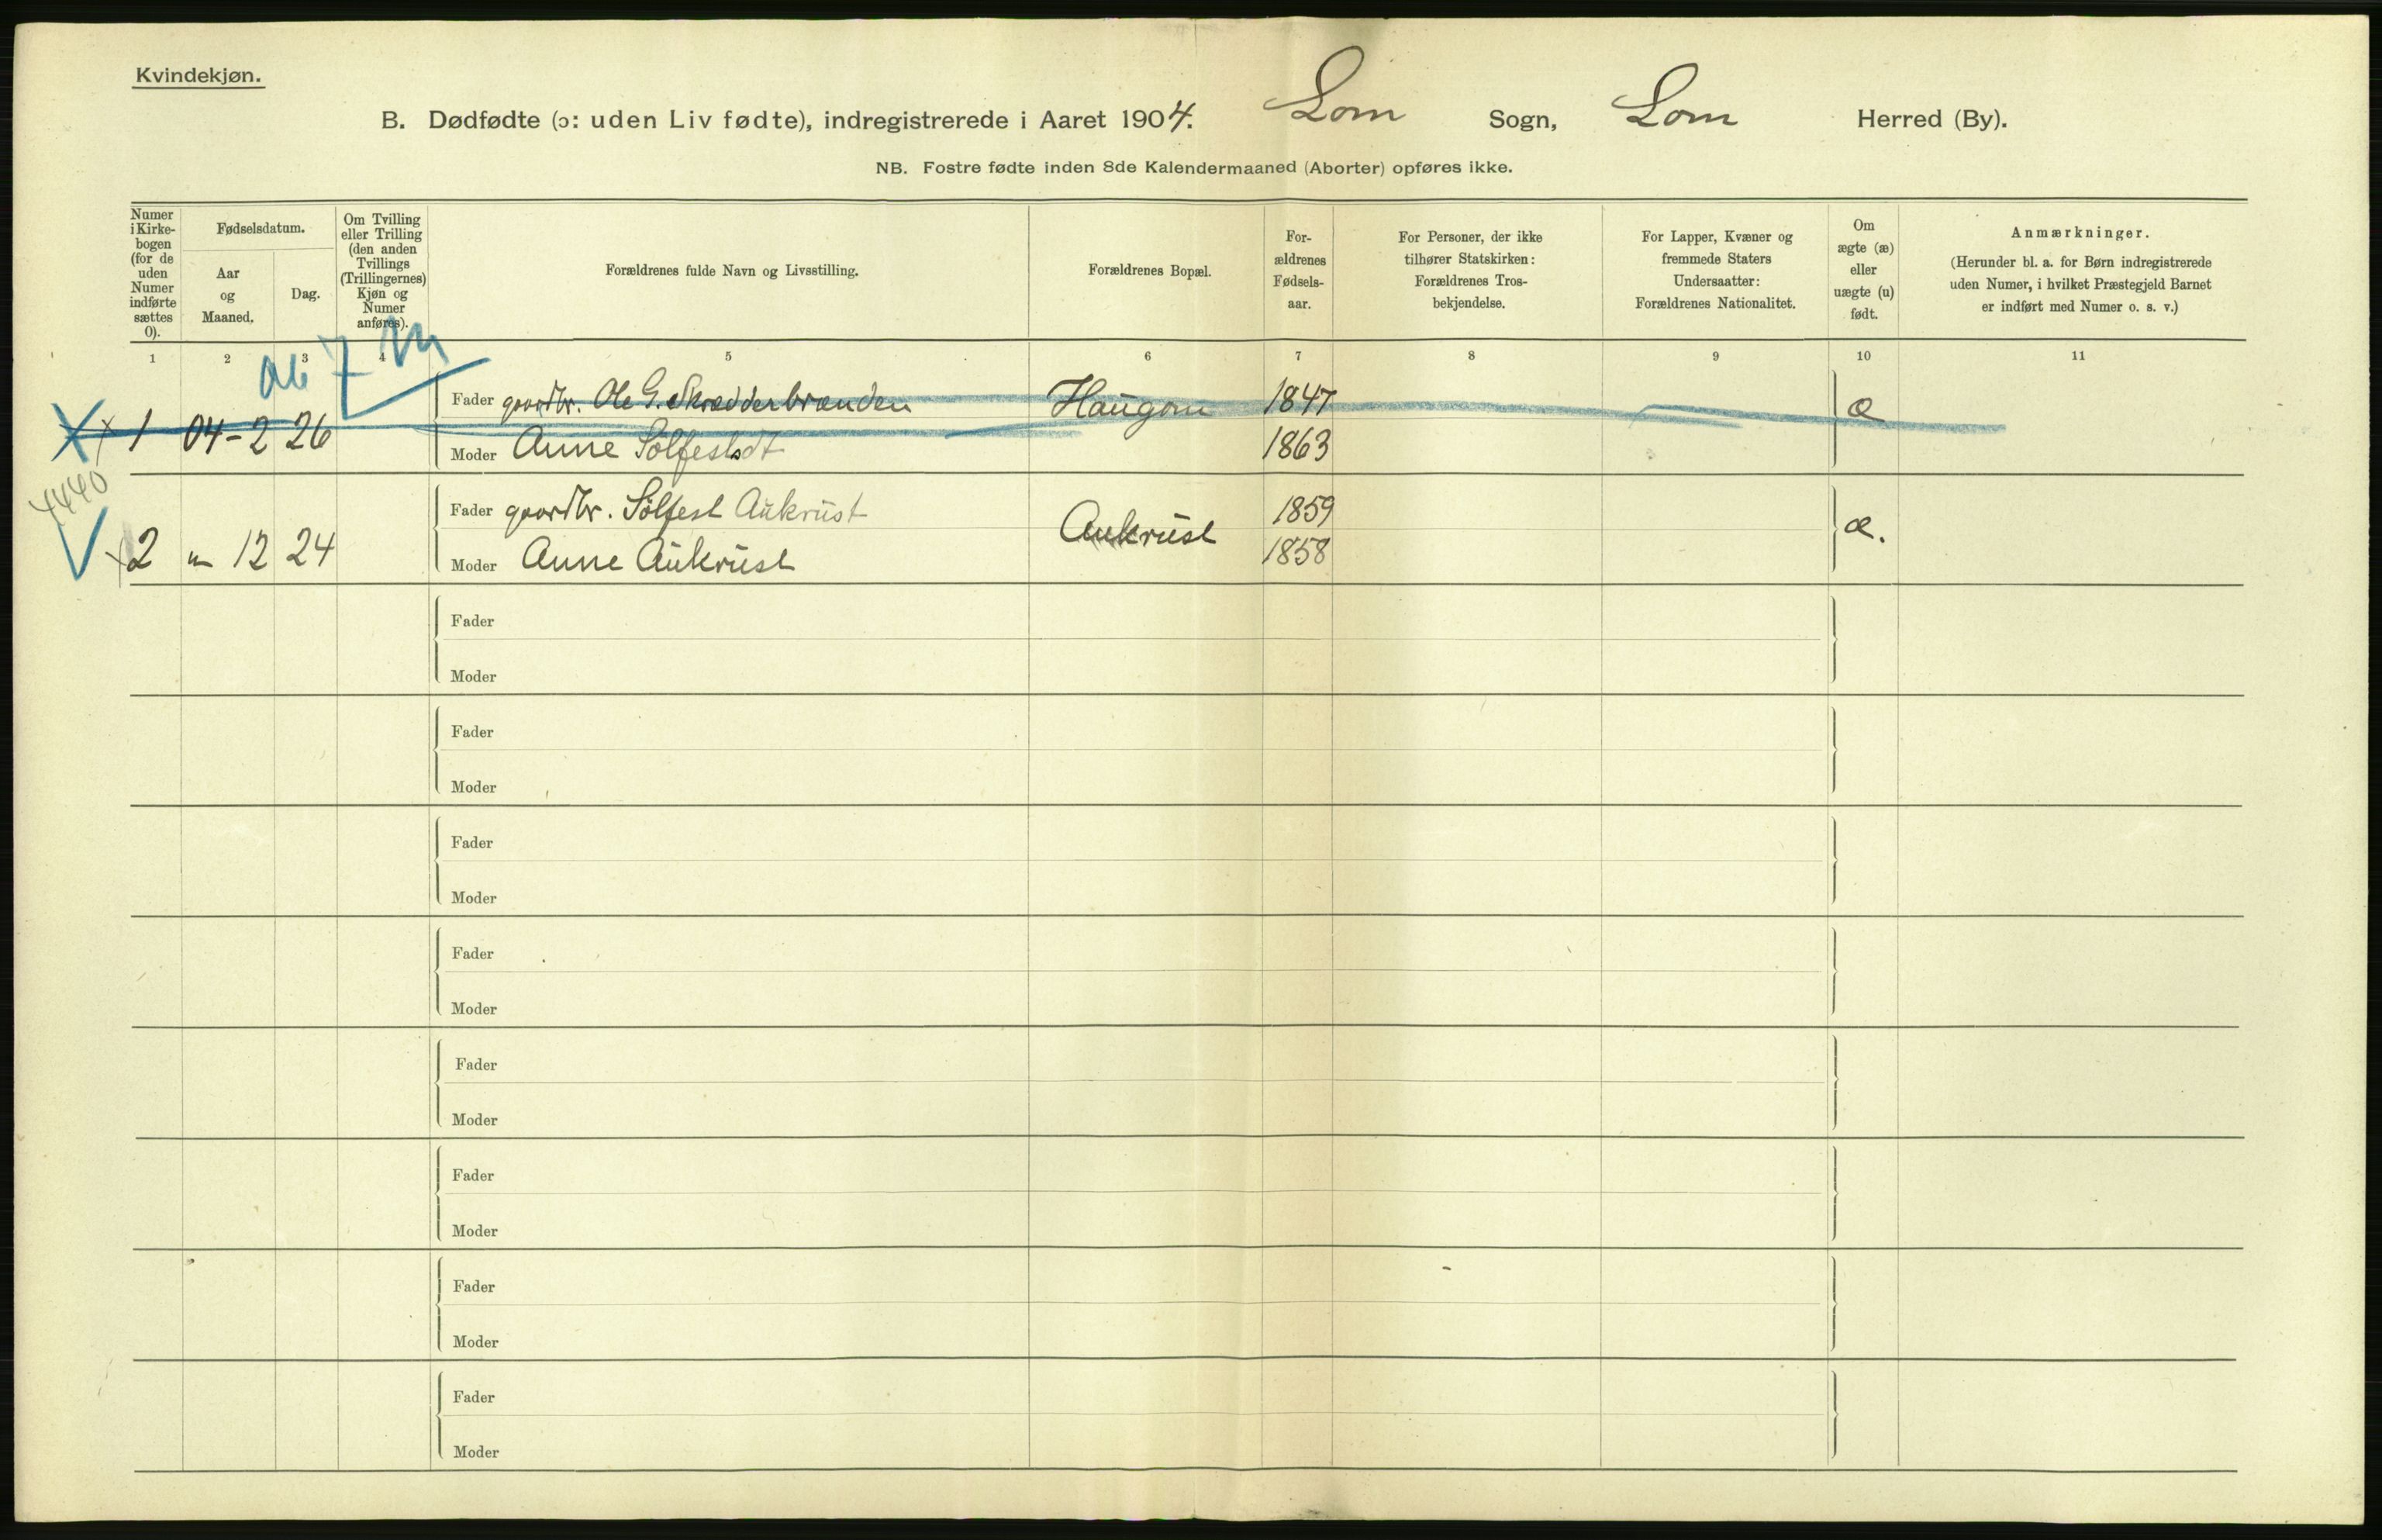 Kvindekjøn.
B. Dødfødte (ɔ: uden Liv fødte), indregistrerede i Aaret 1904. Lom Sogn, Lom Herred (By).
NB. Fostre fødte inden 8de Kalendermaaned (Aborter) opføres ikke.
Numer
i Kirke-
bogen
(for de
uden
Numer
indførte
sættes
0).
Fødselsdatum.
Aar
og
Maaned.
Dag.
Om Tvilling
eller Trilling
(den anden
Tvillings
(Trillingernes)
Kjøn og
Numer
anføres).
Forældrenes fulde Navn og Livsstilling.
Forældrenes Bopæl.
For-
ældrenes
Fødsels-
aar.
For Personer, der ikke
tilhører Statskirken:
Forældrenes Tros-
bekjendelse.
For Lapper, Kvæner og
fremmede Staters
Undersaatter:
Forældrenes Nationalitet.
Om
ægte (æ)
eller
uægte (u)
født.
Anmærkninger.
(Herunder bl. a. for Børn indregistrerede
uden Numer, i hvilket Præstegjeld Barnet
er indført med Numer o. s. v.)
1 2 3 4 5 6 7 8 9 10 11
7 m
Fader gaardbr. Ole G. Skrædderbrænden Haugom 1847 æ
X 1 04-2 26
Moder Anne Solfestsdt 1863
4440
Fader gaardbr. Sølfest Aukrust Aukrust 1859 æ.
2 " 12 24
Moder Anne Aukrust 1858
Fader
Moder
Fader
Moder
Fader
Moder
Fader
Moder
Fader
Moder
Fader
Moder
Fader
Moder
Fader
Moder